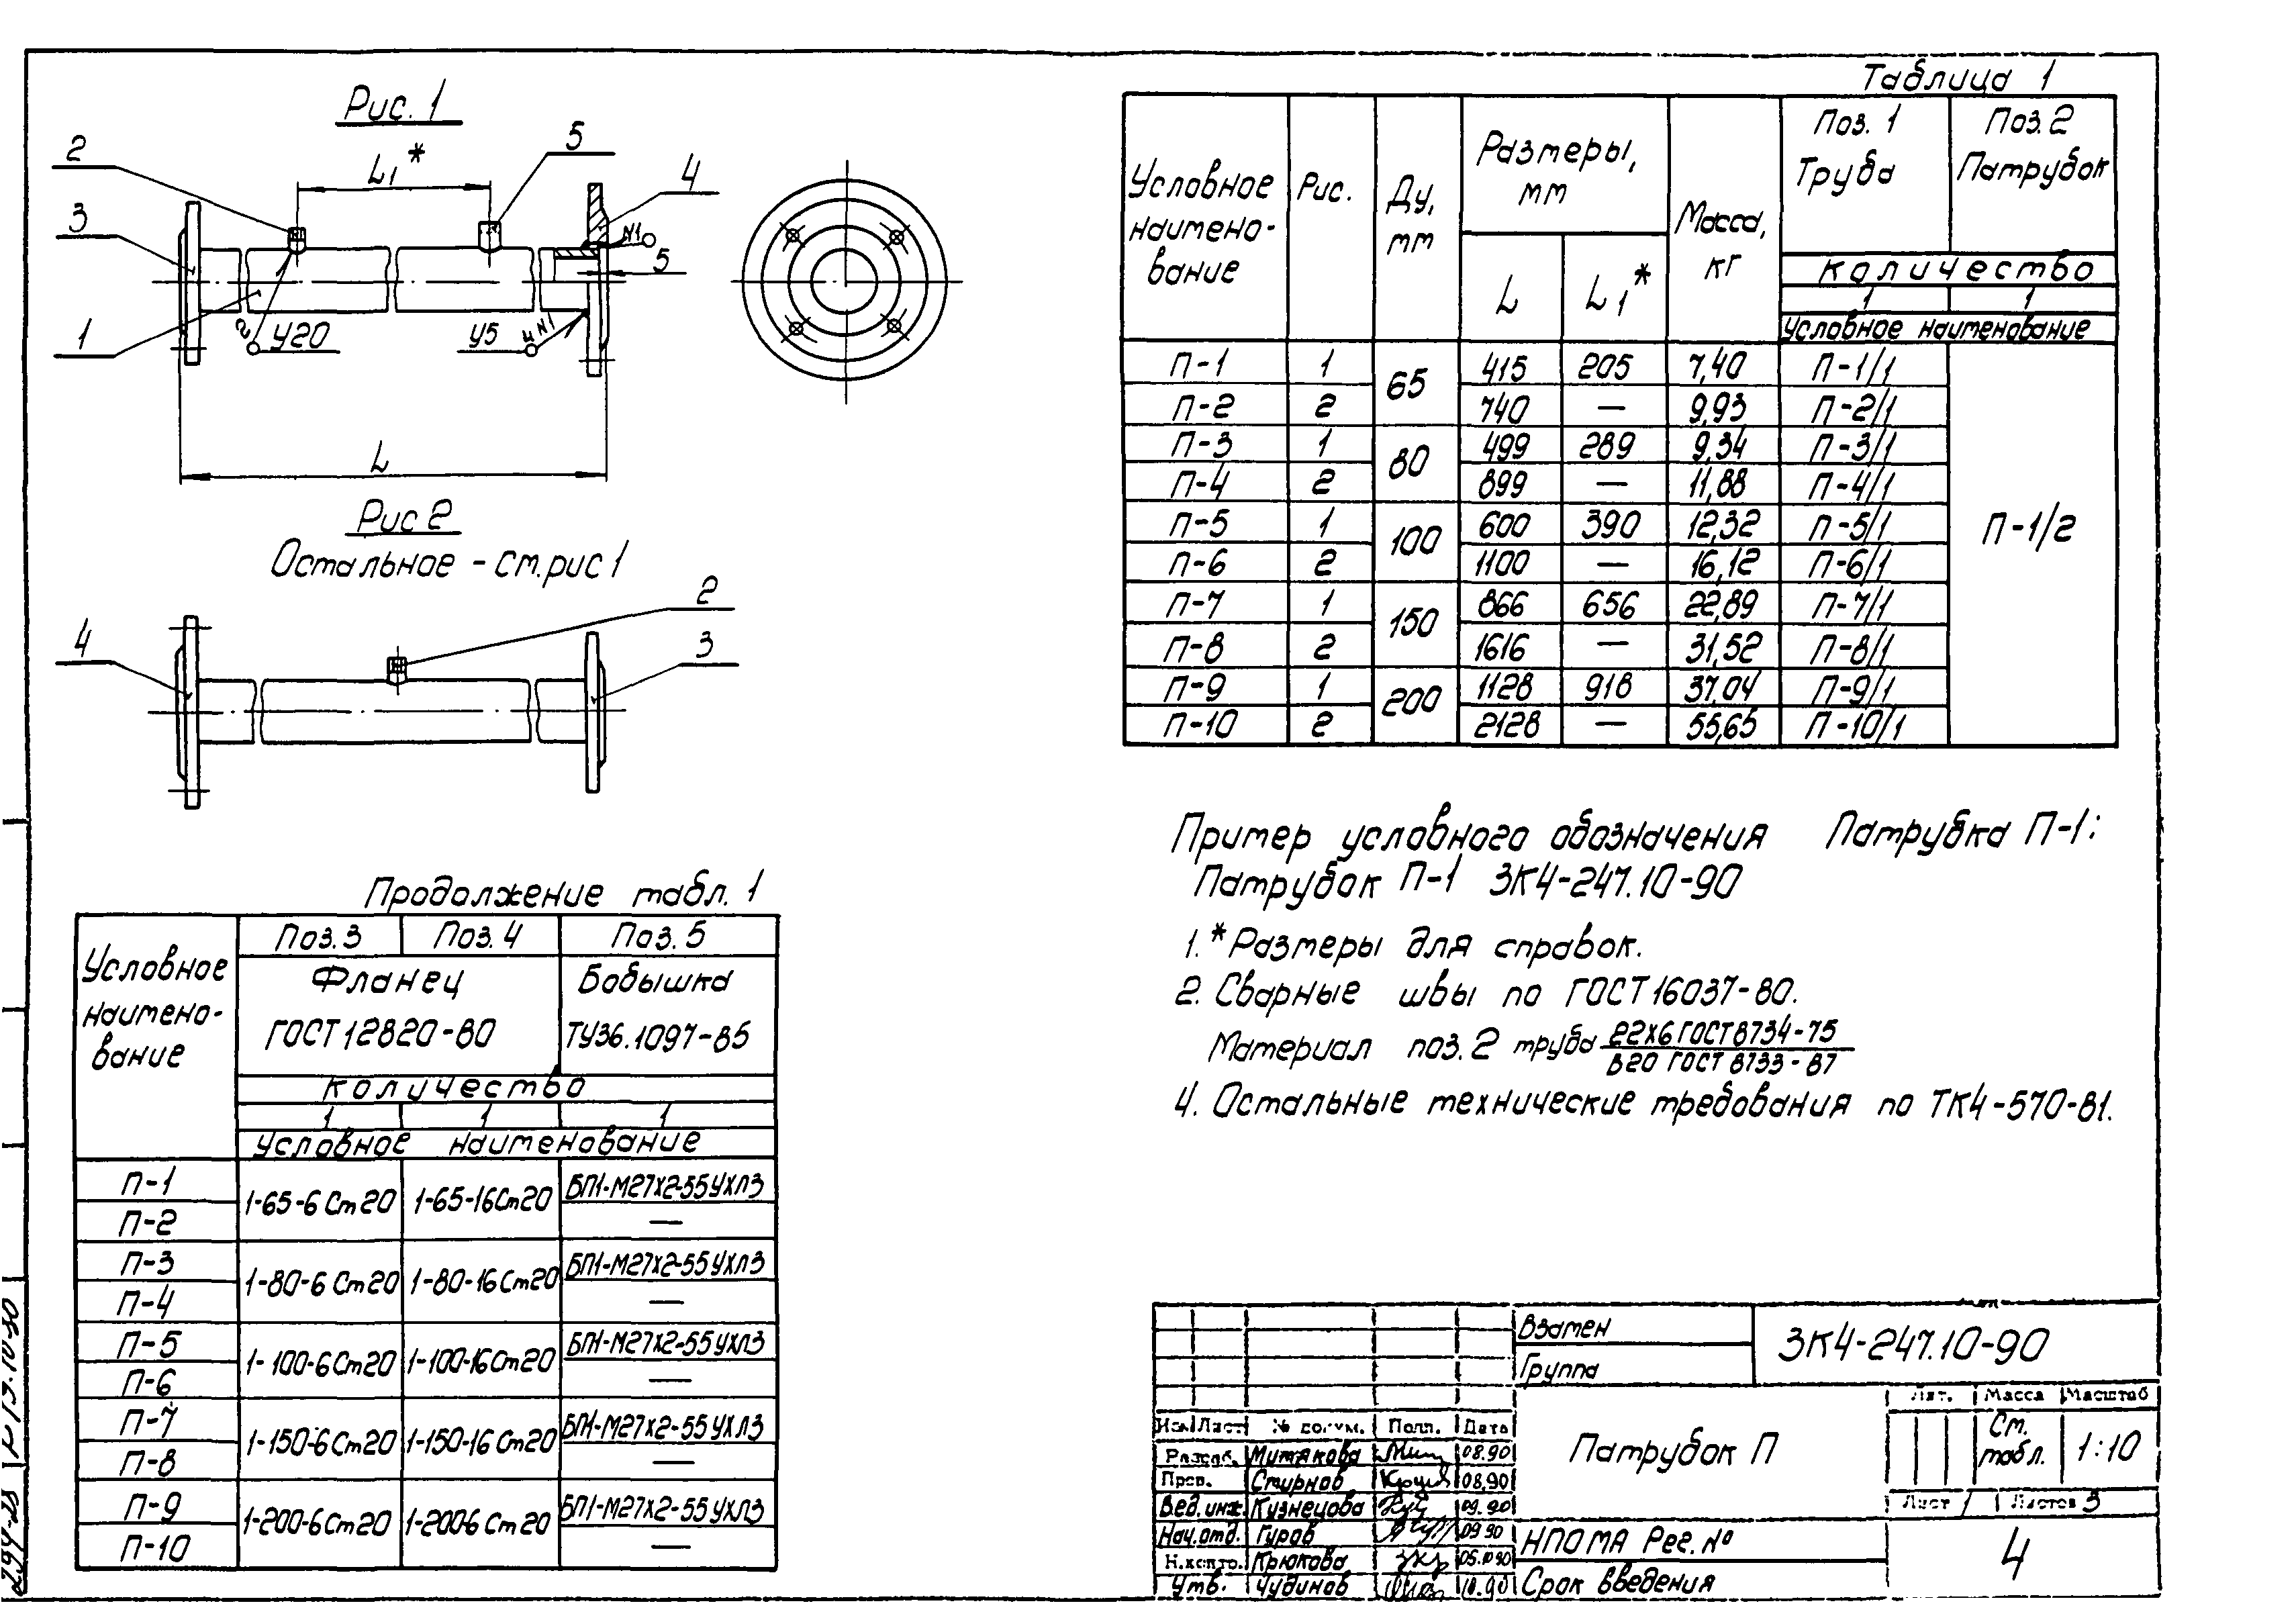 Рис. 1
2
L1*
5
4
3
N1
5
1
2
У20
У5
4 N1
L
Рис 2
Остальное - см. рис 1
2
4
3
Таблица 1
Условное наимено-вание
Рис.
Ду, мм
Размеры, мм
L
L1*
Масса, кг
Поз. 1 Труба
Поз. 2 Патрубок
Количество
1 1
Условное наименование
П-1 1 65 415 205 7,40 П-1/1 П-1/2
П-2 2 740 — 9,93 П-2/1
П-3 1 80 499 289 9,34 П-3/1
П-4 2 899 — 11,88 П-4/1
П-5 1 100 600 390 12,32 П-5/1
П-6 2 1100 — 16,12 П-6/1
П-7 1 150 866 656 22,89 П-7/1
П-8 2 1616 — 31,52 П-8/1
П-9 1 200 1128 918 37,04 П-9/1
П-10 2 2128 — 55,65 П-10/1
Пример условного обозначения Патрубка П-1:
Патрубок П-1 ЗК4-247.10-90
1. * Размеры для справок.
2. Сварные швы по ГОСТ 16037-80.
Материал поз. 2 труба 22х6 ГОСТ 8734-75
В20 ГОСТ 8733-87
4. Остальные технические требования по ТК4-570-81.
Продолжение табл. 1
Условное наимено-вание
Поз. 3 Поз. 4 Поз. 5
Фланец ГОСТ 12820-80
Бобышка ТУ36.1097-85
Количество
1 1 1
Условное наименование
П-1 1-65-6 Ст20 1-65-16 Ст20 БП1-М27х2-55 УХЛ3
П-2 —
П-3 1-80-6 Ст20 1-80-16 Ст20 БП1-М27х2-55 УХЛ3
П-4 —
П-5 1-100-6 Ст20 1-100-16 Ст20 БП1-М27х2-55 УХЛ3
П-6 —
П-7 1-150-6 Ст20 1-150-16 Ст20 БП1-М27х2-55 УХЛ3
П-8 —
П-9 1-200-6 Ст20 1-2006 Ст20 БП1-М27х2-55 УХЛ3
П-10 —
Взамен
Группа
ЗК4-247.10-90
Изм Лист № докум. Подп. Дата
Разраб. Митякова 08.90
Пров. Смирнов 08.90
Вед. инж. Кузнецова 09.90
Нач. отд. Гуров 09 90
Н.контр. Крюкова 05.10 90
Утв. Чудинов 10.90
Патрубок П
Лит. Масса Масштаб
См. табл. 1:10
Лист 1 Листов 3
НПОМА Рег. №
Срок введения
4